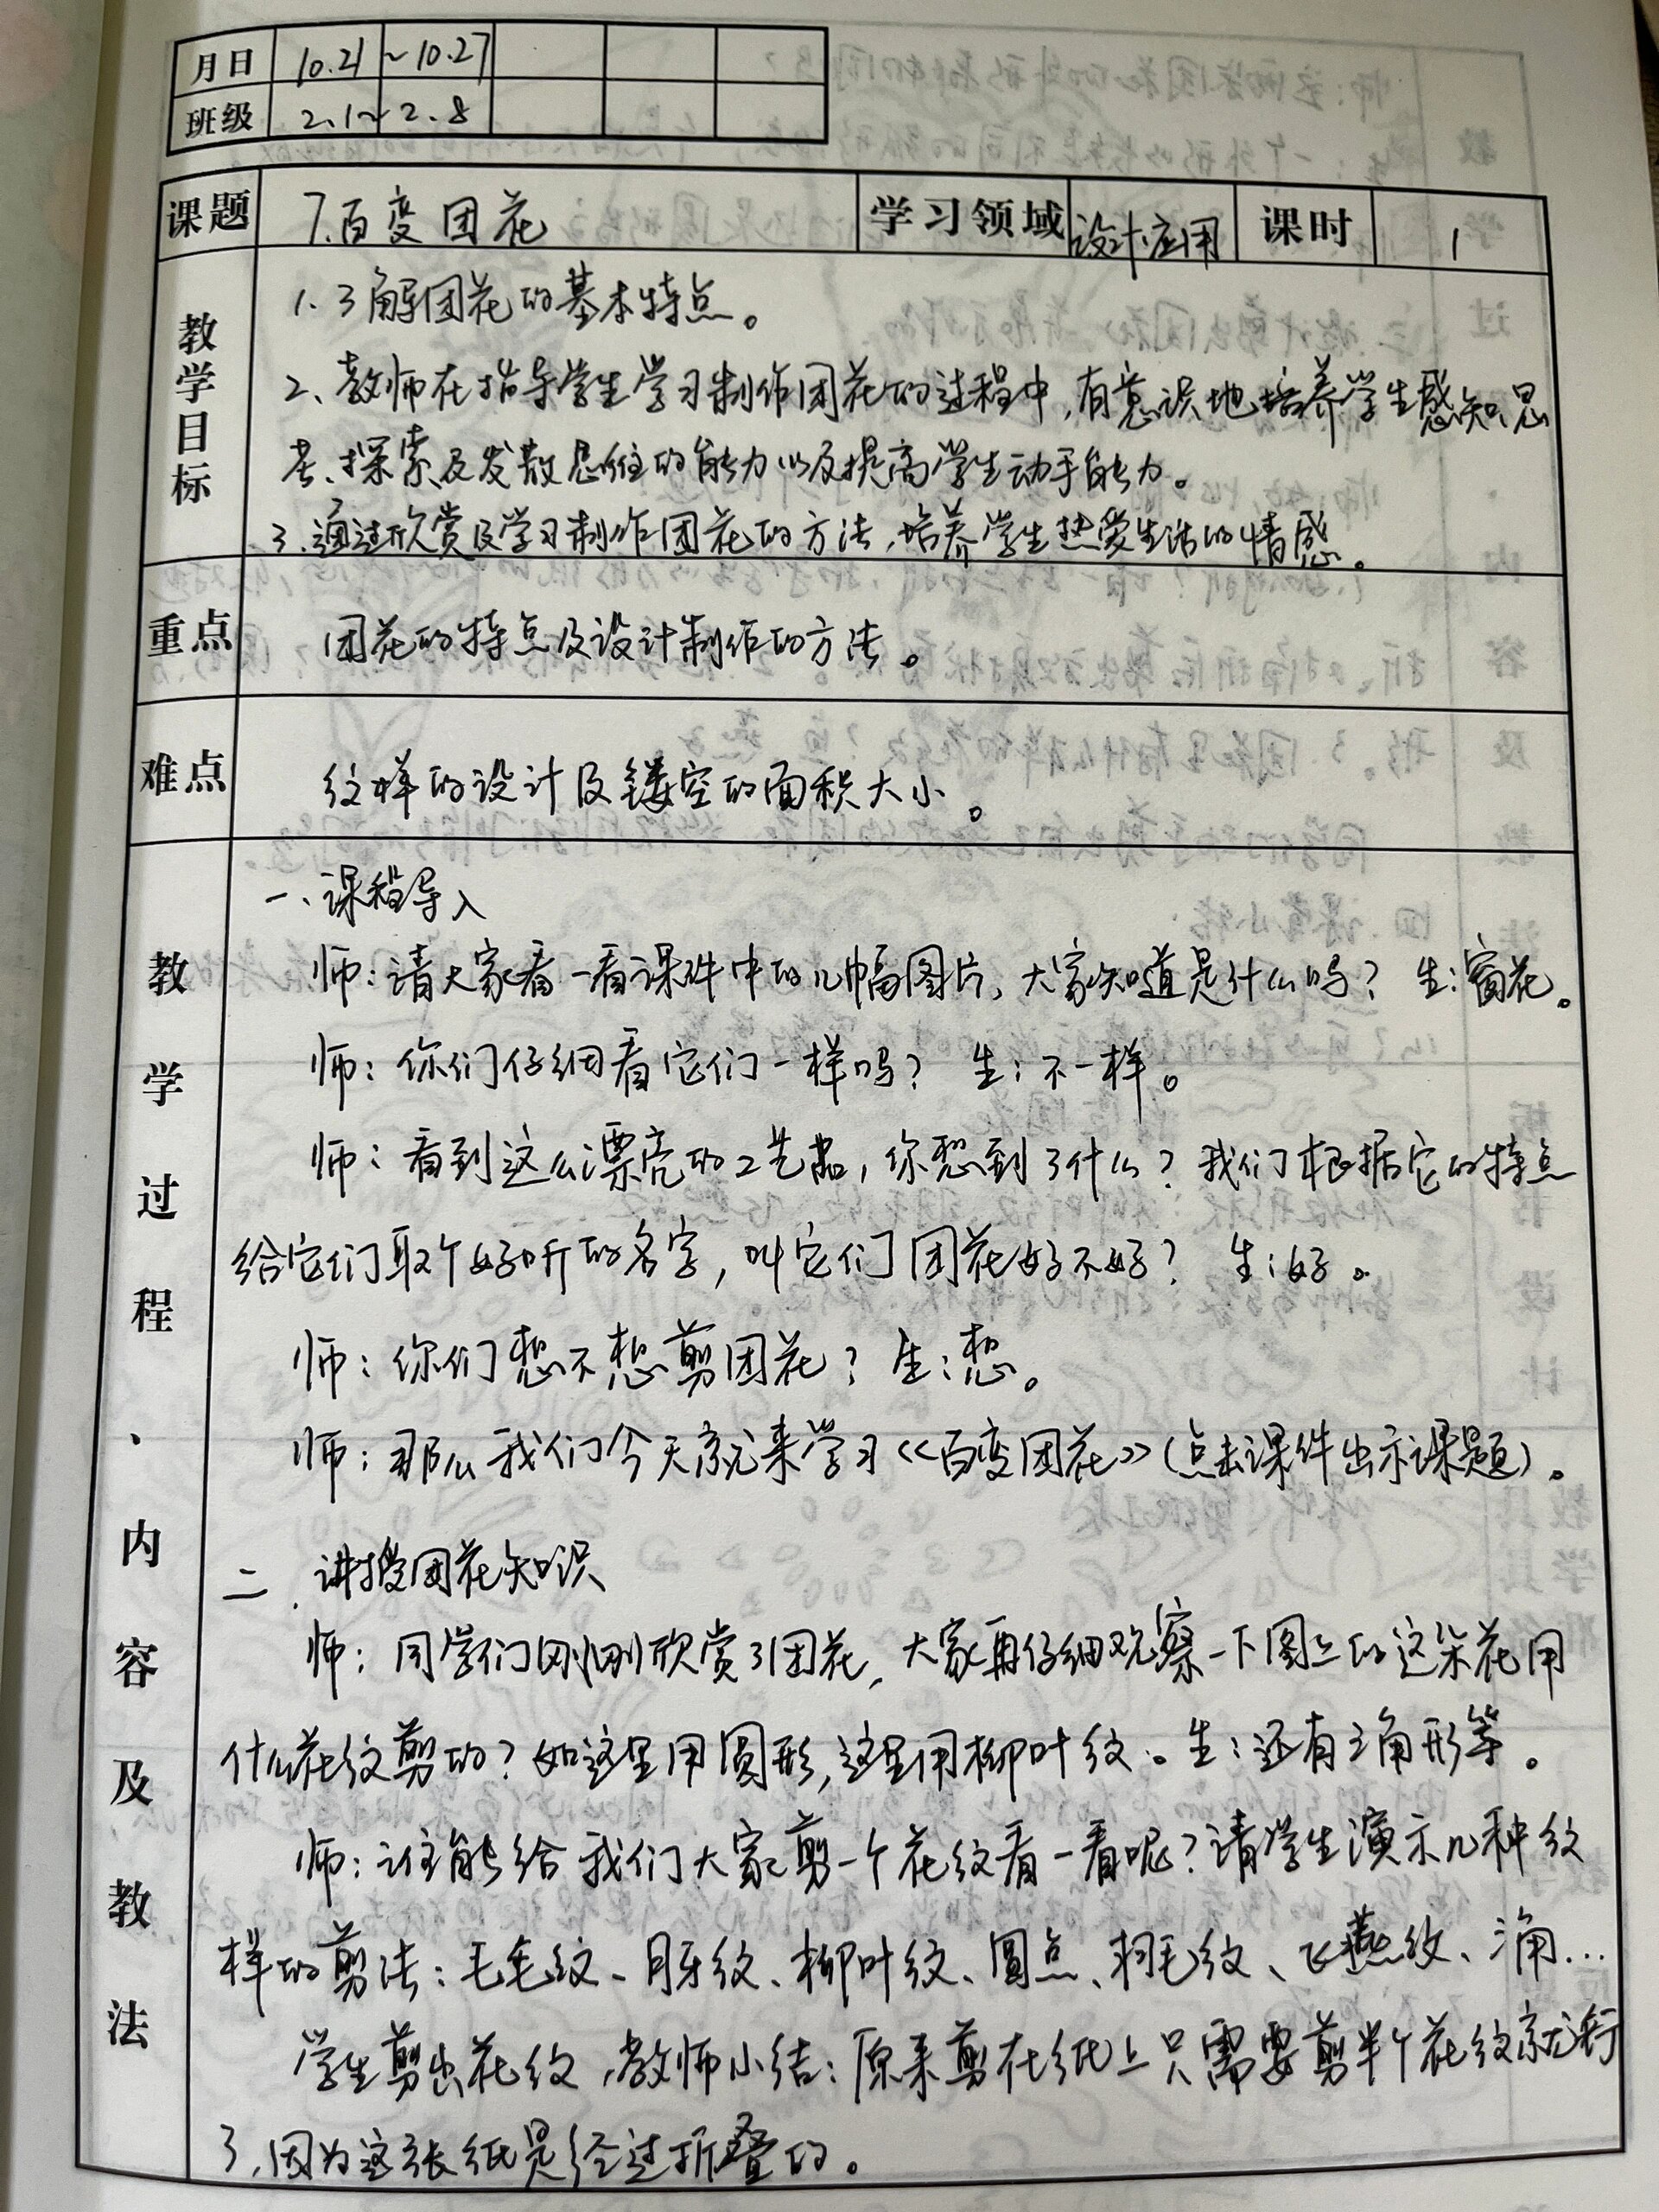 月日 10.21 ~ 10.27
班级 2.1~ 2.8
课题 7.百变团花 学习领域 设计应用 课时 1
教学目标
1.了解团花的基本特点。
2、教师在指导学生学习制作团花的过程中,有意识地培养学生感知、思
考、探索及发散思维的能力以及提高学生动手能力。
3.通过欣赏及学习制作团花的方法,培养学生热爱生活的情感。
重点 团花的特点及设计制作的方法。
难点 纹样的设计及镂空的面积大小。
教学过程、内容及教法
一、课程导入
师:请大家看一看课件中的几幅图片,大家知道是什么吗? 生:窗花。
师:你们仔细看它们一样吗? 生:不一样。
师:看到这么漂亮的工艺品,你想到了什么?我们根据它的特点
给它们取个好听的名字,叫它们团花好不好? 生:好。
师:你们想不想剪团花? 生:想。
师:那么我们今天就来学习《百变团花》(点击课件出示课题)。
二、讲授团花知识
师:同学们刚刚欣赏了团花,大家再仔细观察一下图上的这朵花用
什么花纹剪的?如这里用圆形,这里用柳叶纹。生:还有三角形等。
师:谁能给我们大家剪一个花纹看一看呢?请学生演示几种纹
样的剪法:毛毛纹、月牙纹、柳叶纹、圆点、羽毛纹、飞燕纹、三角...
学生剪出花纹,教师小结:原来剪在纸上只需要剪半个花纹就行
了,因为这张纸是经过折叠的。